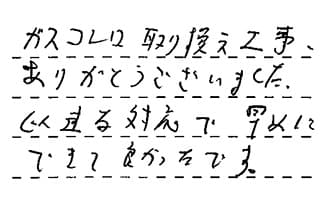 ガスコンロ取り換え工事、
ありがとうございました。
迅速な対応で早めに
できて良かったです。